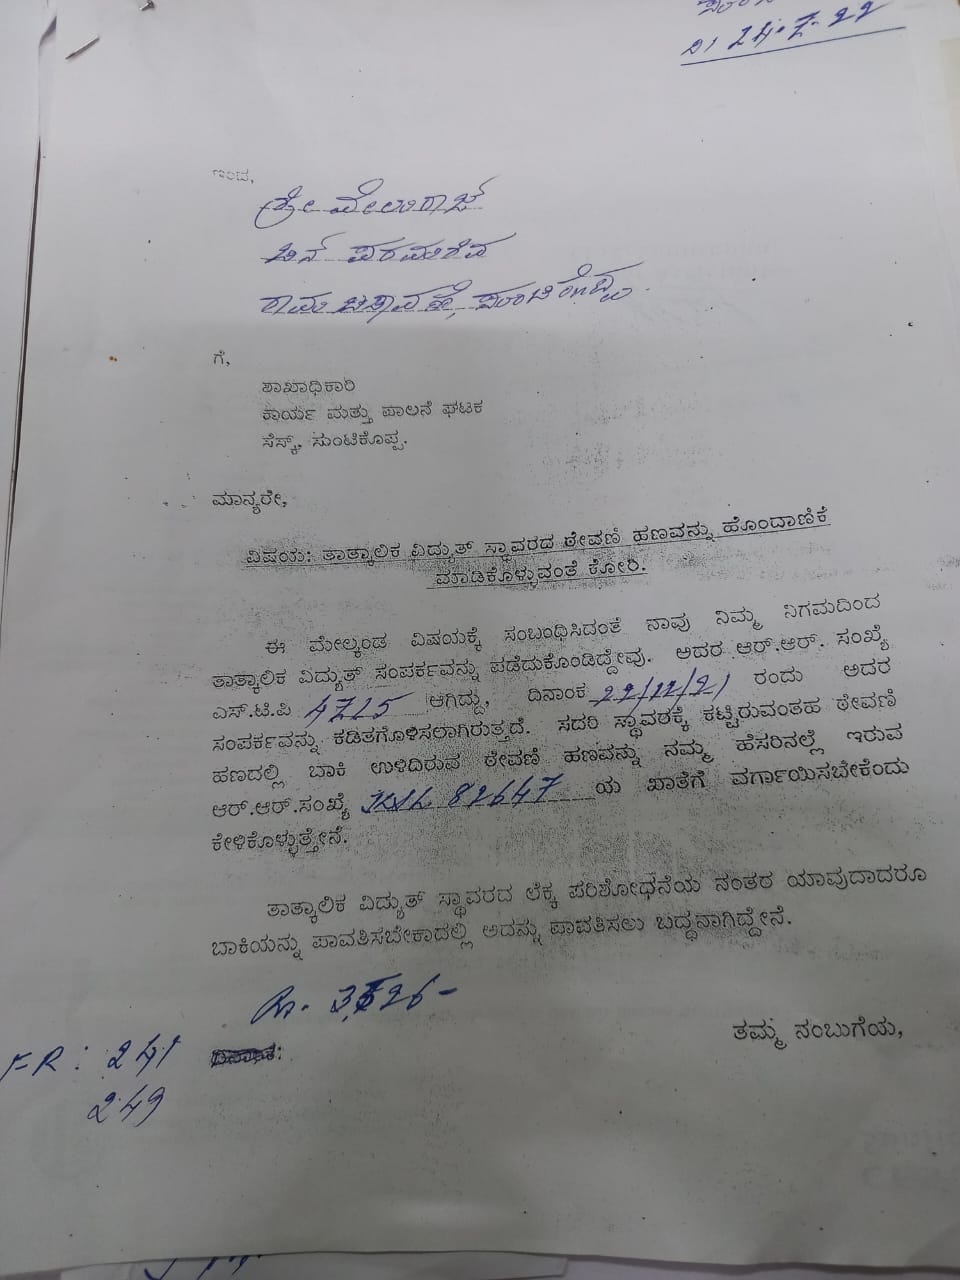 ದಿ 24.7.22
ಇಂದ,
ಶ್ರೀ ವೇಲುರಾಜ್
ಬಿನ್ ಪರಮಶಿವ
ಗೆ,
ಶಾಖಾಧಿಕಾರಿ
ಕಾರ್ಯ ಮತ್ತು ಪಾಲನೆ ಘಟಕ
ಸೆಸ್ಕ್, ಸುಂಟಿಕೊಪ್ಪ.
ಮಾನ್ಯರೇ,
ವಿಷಯ: ತಾತ್ಕಾಲಿಕ ವಿದ್ಯುತ್ ಸ್ಥಾವರದ ಠೇವಣಿ ಹಣವನ್ನು ಹೊಂದಾಣಿಕೆ
ಮಾಡಿಕೊಳ್ಳುವಂತೆ ಕೋರಿ.
ಈ ಮೇಲ್ಕಂಡ ವಿಷಯಕ್ಕೆ ಸಂಬಂಧಿಸಿದಂತೆ ನಾವು ನಿಮ್ಮ ನಿಗಮದಿಂದ
ತಾತ್ಕಾಲಿಕ ವಿದ್ಯುತ್ ಸಂಪರ್ಕವನ್ನು ಪಡೆದುಕೊಂಡಿದ್ದೇವು. ಅದರ ಆರ್.ಆರ್. ಸಂಖ್ಯೆ
ಎಸ್.ಟಿ.ಪಿ 4715 ಆಗಿದ್ದು, ದಿನಾಂಕ 22/12/21 ರಂದು ಅದರ
ಸಂಪರ್ಕವನ್ನು ಕಡಿತಗೊಳಿಸಲಾಗಿರುತ್ತದೆ. ಸದರಿ ಸ್ಥಾವರಕ್ಕೆ ಕಟ್ಟಿರುವಂತಹ ಠೇವಣಿ
ಹಣದಲ್ಲಿ ಬಾಕಿ ಉಳಿದಿರುವ ಠೇವಣಿ ಹಣವನ್ನು ನಮ್ಮ ಹೆಸರಿನಲ್ಲೆ ಇರುವ
ಆರ್.ಆರ್.ಸಂಖ್ಯೆ 82647 ಯ ಖಾತೆಗೆ ವರ್ಗಾಯಿಸಬೇಕೆಂದು
ಕೇಳಿಕೊಳ್ಳುತ್ತೇನೆ.
ತಾತ್ಕಾಲಿಕ ವಿದ್ಯುತ್ ಸ್ಥಾವರದ ಲೆಕ್ಕ ಪರಿಶೋಧನೆಯ ನಂತರ ಯಾವುದಾದರೂ
ಬಾಕಿಯನ್ನು ಪಾವತಿಸಬೇಕಾದಲ್ಲಿ ಅದನ್ನು ಪಾವತಿಸಲು ಬದ್ಧನಾಗಿದ್ದೇನೆ.
ತಮ್ಮ ನಂಬುಗೆಯ,
FR: 241
249